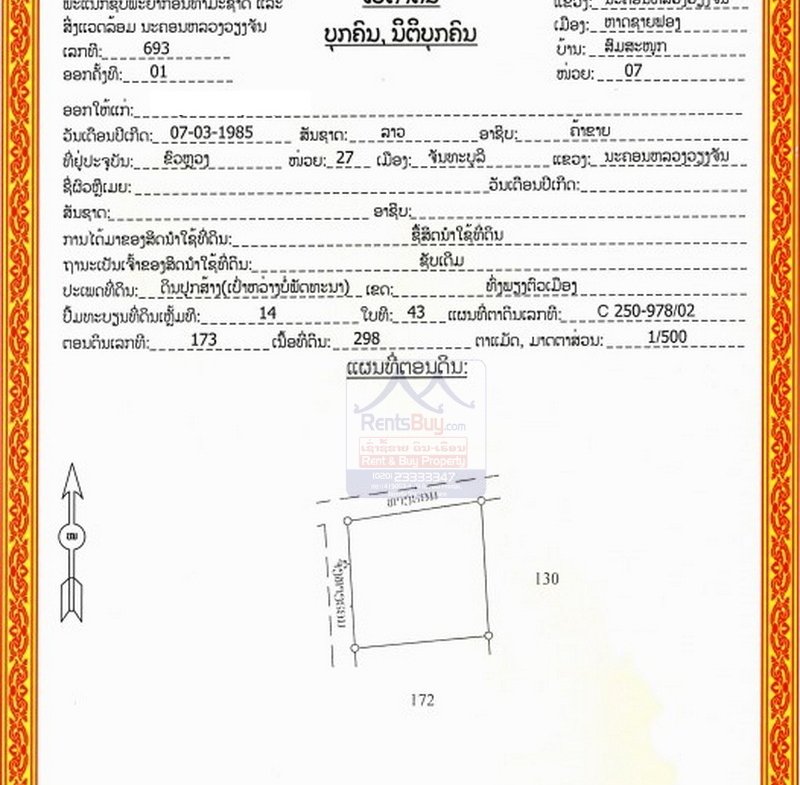 ພະແນກຊັບພະຍາກອນທຳມະຊາດ ແລະ
ສິ່ງແວດລ້ອມ ນະຄອນຫລວງວຽງຈັນ
ເລກທີ: 693
ອອກຄັ້ງທີ: 01
ບຸກຄົນ, ນິຕິບຸກຄົນ
ແຂວງ: ນະຄອນຫລວງວຽງຈັນ
ເມືອງ: ຫາດຊາຍຟອງ
ບ້ານ: ສົມສະໜຸກ
ໜ່ວຍ: 07
ອອກໃຫ້ແກ່:
ວັນເດືອນປີເກີດ: 07-03-1985 ສັນຊາດ: ລາວ ອາຊິບ: ຄ້າຂາຍ
ທີ່ຢູ່ປະຈຸບັນ: ຂົວຫຼວງ ໜ່ວຍ: 27 ເມືອງ: ຈັນທະບູລີ ແຂວງ: ນະຄອນຫລວງວຽງຈັນ
ຊື່ຜົວຫຼືເມຍ: ວັນເດືອນປີເກີດ:
ສັນຊາດ: ອາຊິບ:
ການໄດ້ມາຂອງສິດນຳໃຊ້ທີ່ດິນ: ຊື້ສິດນຳໃຊ້ທີ່ດິນ
ຖານະເປັນເຈົ້າຂອງສິດນຳໃຊ້ທີ່ດິນ: ຊັບເດີມ
ປະເພດທີ່ດິນ: ດິນປຸກສ້າງ(ເປົ່າຫວ່າງບໍ່ພັດທະນາ) ເຂດ: ທົ່ງພຽງຕົວເມືອງ
ປຶ້ມທະບຽນທີ່ດິນເຫຼັ້ມທີ: 14 ໃບທີ: 43 ແຜນທີ່ຕາດິນເລກທີ: C 250-978/02
ຕອນດິນເລກທີ: 173 ເນື້ອທີ່ດິນ: 298 ຕາແມັດ, ມາດຕາສ່ວນ: 1/500
ແຜນທີ່ຕອນດິນ:
RentsBuy.com
ເຊົ່າຊື້ຂາຍ ດິນ-ເຮືອນ
Rent & Buy Property
(020) 23333347
ທາງຊອມ
130
172